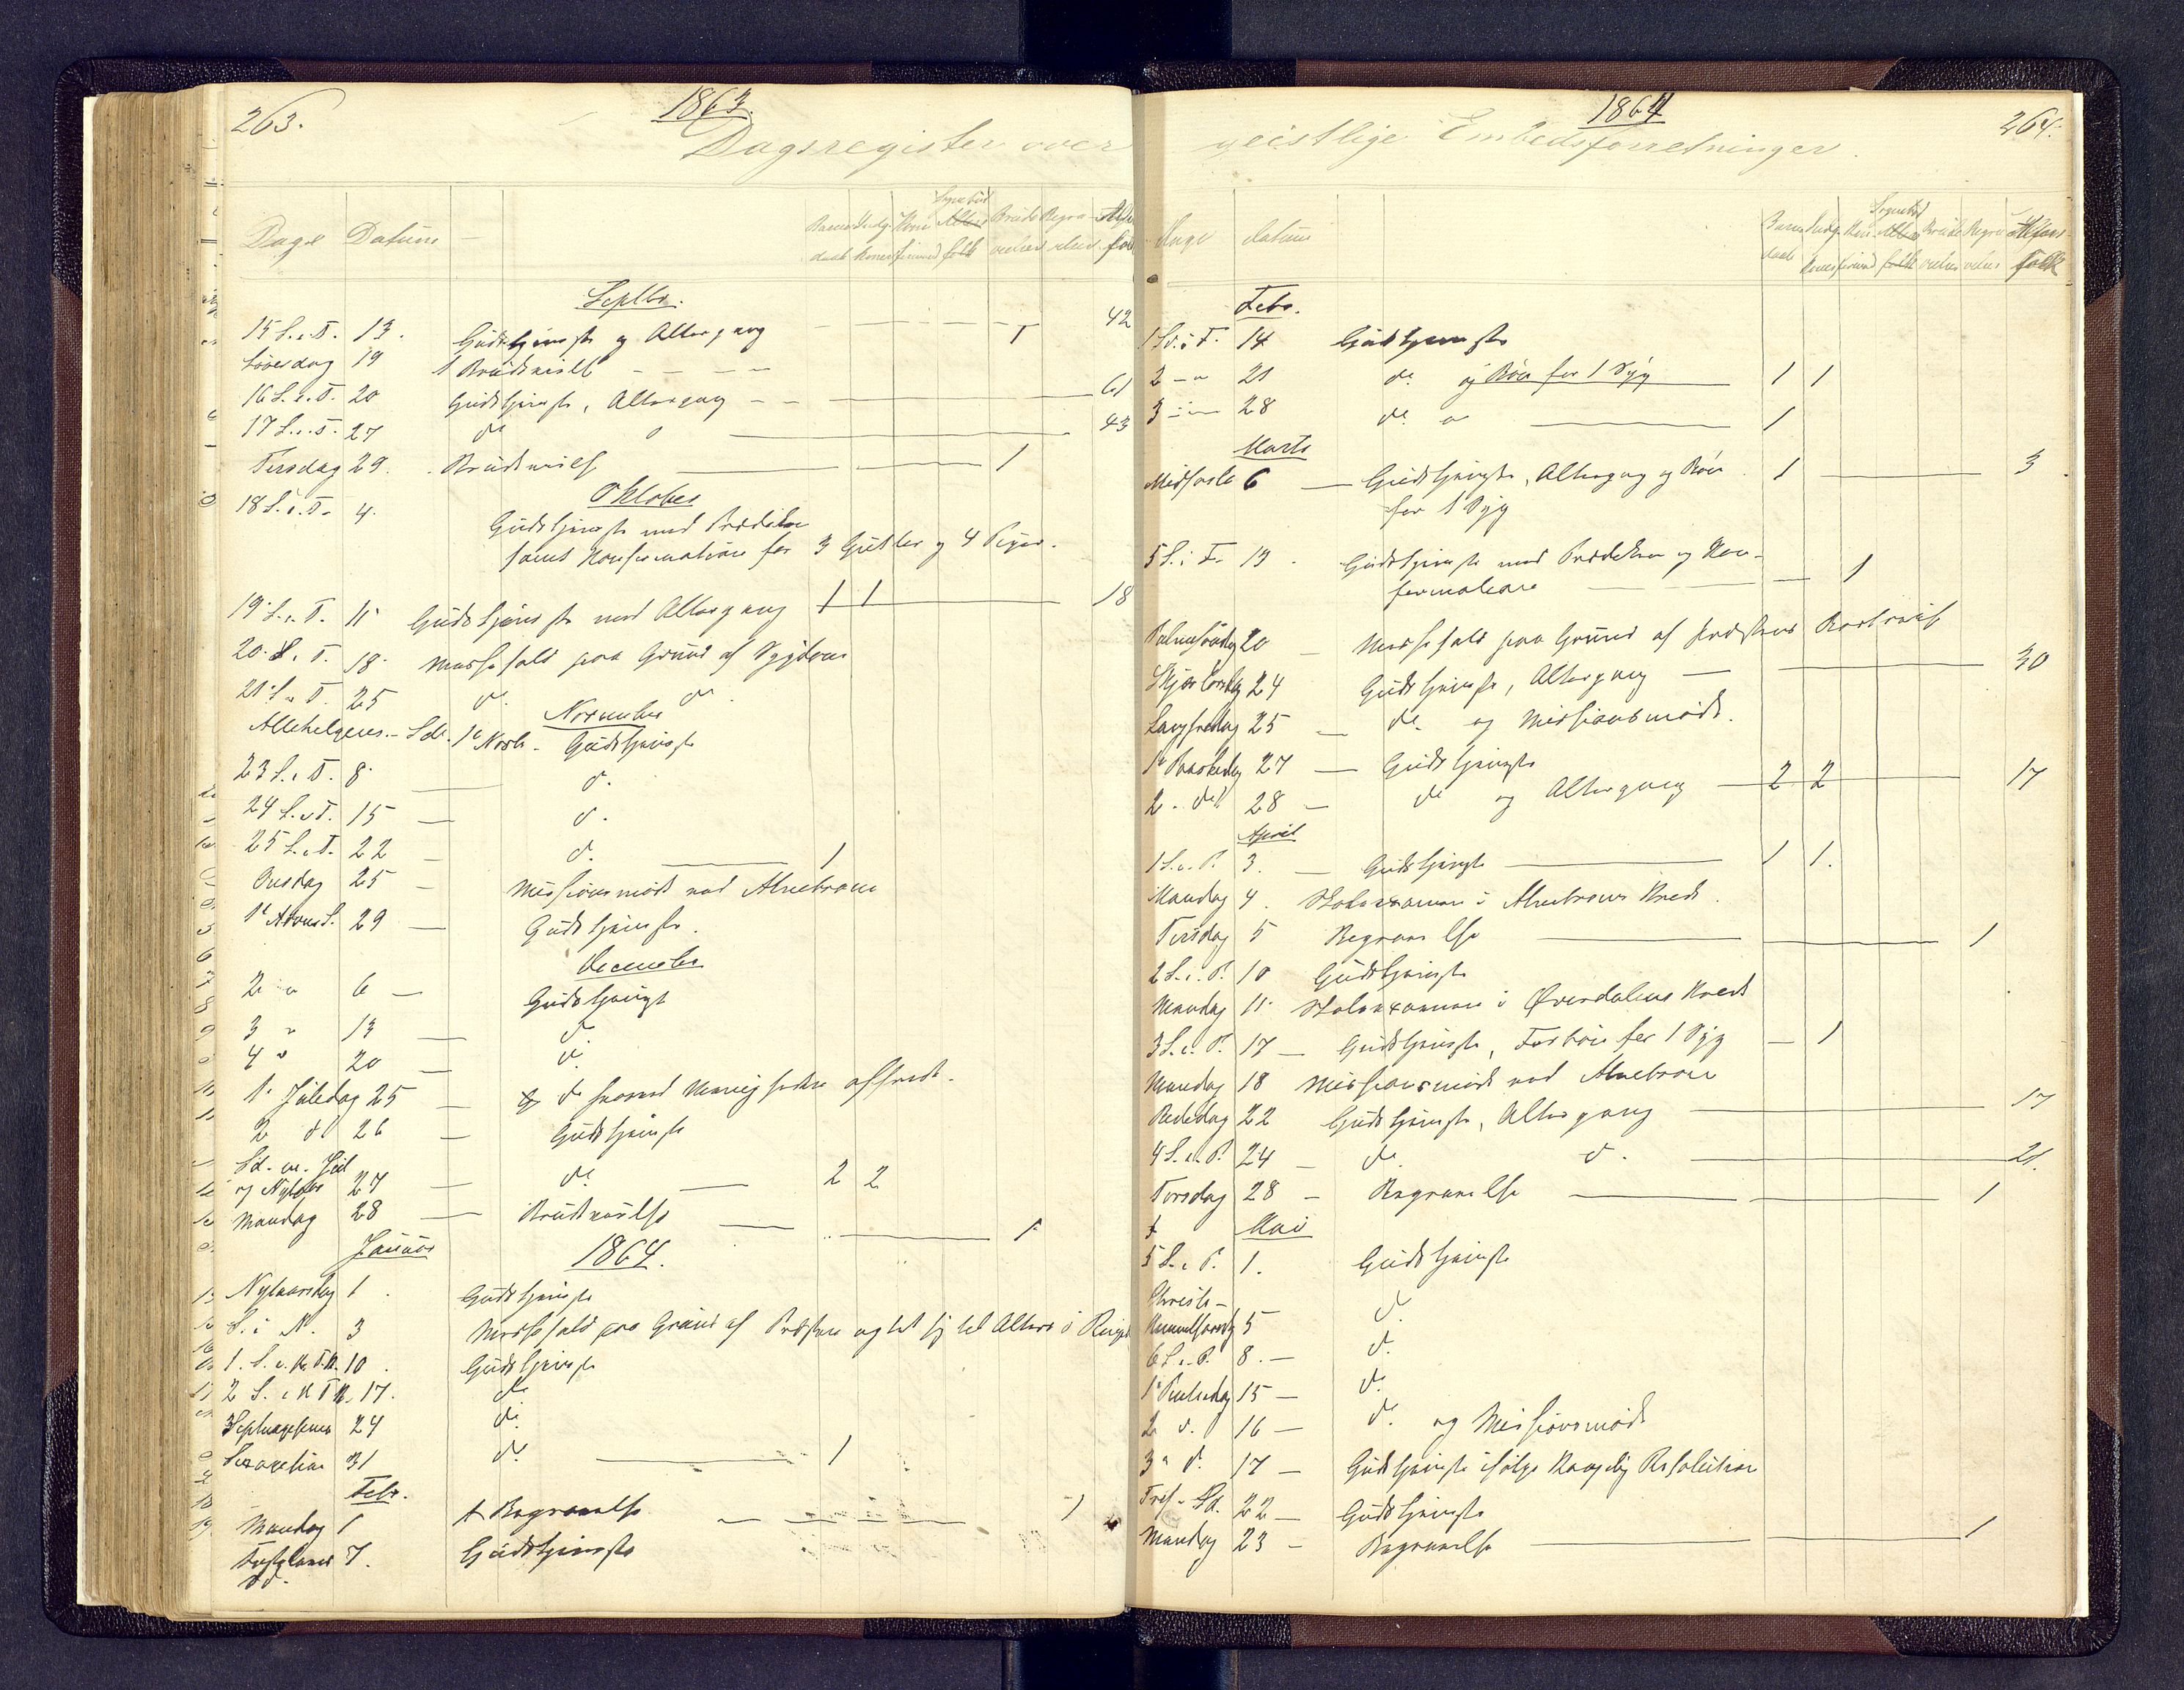 263.
1863.
Dagsregister over
Dage Datum
Septbr.
15 S. e. T. 13. Gudstjeneste og Altergang 42
Løverdag 19 1 Brudevielse 1
16 S. e. T. 20 Gudstjeneste, Altergang 61
17 S. e. T. 27 do 43
Tirsdag 29. Brudevielse 1
Oktober
18 S. e. T. 4. Gudstjeneste med Prædiken
samt Konfirmation for 3 Gutter og 4 Piger.
19 S. e. T. 11 Gudstjeneste med Altergang 1 1 18
20 S. e. T. 18 Messefald paa Grund af Sygdom
21 S. e. T. 25 do. do.
November
Allehelgens-Sdn. 1e Novb. Gudstjeneste
23 S. e. T. 8 d.
24 S. e. T. 15 d.
25 S. e. T. 22 d. 1
Onsdag 25 Missionsmøde ved Alnebroen
1e Advent S. 29 Gudstjeneste.
December
2 " 6 Gudstjeneste
3 " 13 d.
4 " 20 d.
1. Juledag 25 do
2 do 26 Gudstjeneste
Sd. m. Jul
og Nytaar 27 do 2 2
Mandag 28 Brudevielse 1
Januar 1864.
Nytaarsdag 1 Gudstjeneste
S. e. N. 3 Messefald paa Grund af Præsten
1. S. e. H. T. K. 10. Gudstjeneste
2 S. e. H T K. 17. do
Septuagesima 24 do
Sexagesima 31 do 1
Febr.
Mandag 1 Begravelse 1
Fastelavns 7. Gudstjeneste
Sd.
1864
264.
geistlige Embedsforretninger.
Dage Datum
folk
Febr.
1 Sd. i F. 14 Gudstjeneste
2 - " 21 do. og Bøn for 1 Syg 1 1
3 - " 28 do. 1
Marts
Midfaste 6 Gudstjeneste, Altergang og Bøn 1 3
for 1 Syg
5 S. i F. 13 Gudstjeneste med Prædiken og Kon-
firmation 1
Palmesøndag 20 Messefald paa Grund af Præstens
Skjærtorsdag 24 Gudstjeneste, Altergang 30
Langfredag 25 do. og Missionsmøde.
1e Paaskedag 27 Gudstjeneste
2. do 28 do og Altergang 2 2 17
April
1 S. e. P. 3. Gudstjeneste 1 1.
Mandag 4. Skoleexamen i Alnebroens Kreds.
Tirsdag 5 Begravelse 1
2 S. e. P. 10 Gudstjeneste
Mandag 11 Skoleexamen i Øverdalens Kreds
3 S. e. P. 17 Gudstjeneste, Forbøn for 1 Syg 1
Mandag 18 Missionsmøde ved Alnebroen
Bededag 22 Gudstjeneste, Altergang 17
4 S. e. P. 24 do. d. 21.
Torsdag 28 Begravelse 1
Mai
5 S. e. P. 1. Gudstjeneste
Christi-
Himmelfartsdg 5 d.
6 S. e. P. 8. d.
1e Pintsedag 15 do
2 d. 16 do. og Missionsmøde
3" d. 17 Gudstjeneste ifølge Kongelig Resolution
Tref. Sd. 22 Gudstjeneste
Mandag 23 Begravelse 1